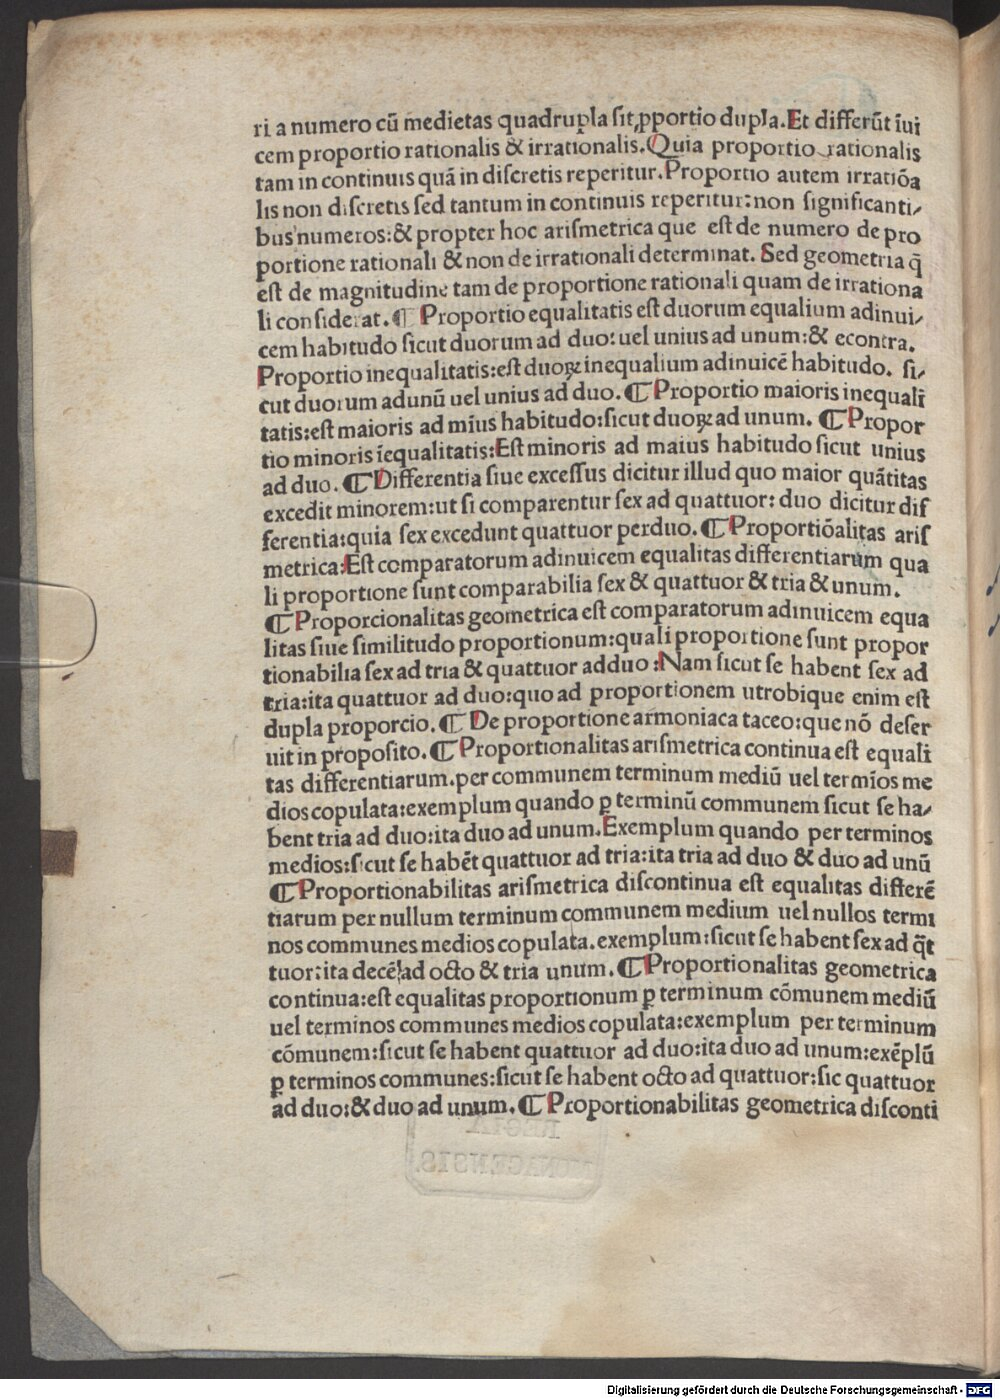 ri a numero cū medietas quadrupla sit ꝓportio dupla. Et differūt īui
cem proportio rationalis & irrationalis. Quia proportio rationalis
tam in continuis quā in discretis reperitur. Proportio autem irratiōa
lis non discretis sed tantum in continuis reperitur: non significanti⸗
bus numeros: & propter hoc arismetrica que est de numero de pro
portione rationali & non de irrationali determinat. Sed geometria q̄
est de magnitudine tam de proportione rationali quam de irrationa
li considerat. ¶ Proportio equalitatis est duorum equalium adinui⸗
cem habitudo sicut duorum ad duo: uel unius ad unum: & econtra.
Proportio inequalitatis: est duoꝝ inequalium adinuicē habitudo. si⸗
cut duorum adunū uel unius ad duo. ¶ Proportio maioris inequali
tatis: est maioris ad mīus habitudo: sicut duoꝝ ad unum. ¶ Propor
tio minoris īequalitatis: Est minoris ad maius habitudo sicut unius
ad duo. ¶ Differentia siue excessus dicitur illud quo maior quātitas
excedit minorem: ut si comparentur sex ad quattuor: duo dicitur dif
ferentia: quia sex excedunt quattuor perduo. ¶ Proportiōalitas aris
metrica: Est comparatorum adinuicem equalitas differentiarum qua
li proportione sunt comparabilia sex & quattuor & tria & unum.
¶ Proporcionalitas geometrica est comparatorum adinuicem equa
litas siue similitudo proportionum: quali proportione sunt propor
tionabilia sex ad tria & quattuor adduo: Nam sicut se habent sex ad
tria: ita quattuor ad duo: quo ad proportionem utrobique enim est
dupla proporcio. ¶ De proportione armoniaca taceo: que nō deser
uit in proposito. ¶ Proportionalitas arismetrica continua est equali
tas differentiarum. per communem terminum mediū uel termīos me
dios copulata: exemplum quando ꝑ terminū communem sicut se ha⸗
bent tria ad duo: ita duo ad unum. Exemplum quando per terminos
medios: sicut se habēt quattuor ad tria: ita tria ad duo & duo ad unū
¶ Proportionabilitas arismetrica discontinua est equalitas differē
tiarum per nullum terminum communem medium uel nullos termi
nos communes medios copulata. exemplum: sicut se habent sex ad q̄t
tuor: ita decē ad octo & tria unum. ¶ Proportionalitas geometrica
continua: est equalitas proportionum ꝑ terminum cōmunem mediū
uel terminos communes medios copulata: exemplum per terminum
cōmunem: sicut se habent quattuor ad duo: ita duo ad unum: exēplū
ꝑ terminos communes: sicut se habent octo ad quattuor: sic quattuor
ad duo: & duo ad unum. ¶ Proportionabilitas geometrica disconti
REGIA
MONACENSIS.
Digitalisierung gefördert durch die Deutsche Forschungsgemeinschaft - DFG